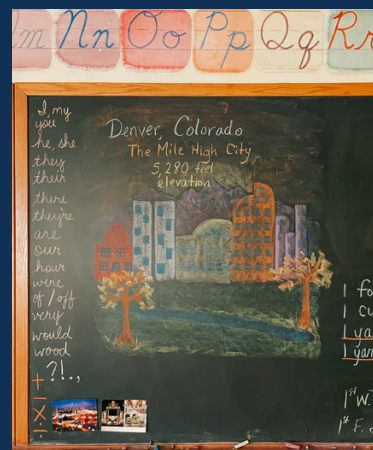 m Nn Oo Pp Qq Rr
I, my
you
he, she
they
their
there
they're
are
our
hour
were
of / off
very
would
wood
+ ?!.,
-
x
÷
Denver, Colorado
The Mile High City
5,280 feet
elevation
1 fo
1 cu
1 ya
1 yar
1st W.
1st F.